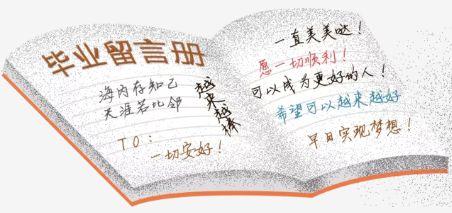 毕业留言册
海内存知己
天涯若比邻
越来越棒
TO：
一切安好！
一直美美哒！
愿一切顺利！
可以成为更好的人！
希望可以越来越好
早日实现梦想！